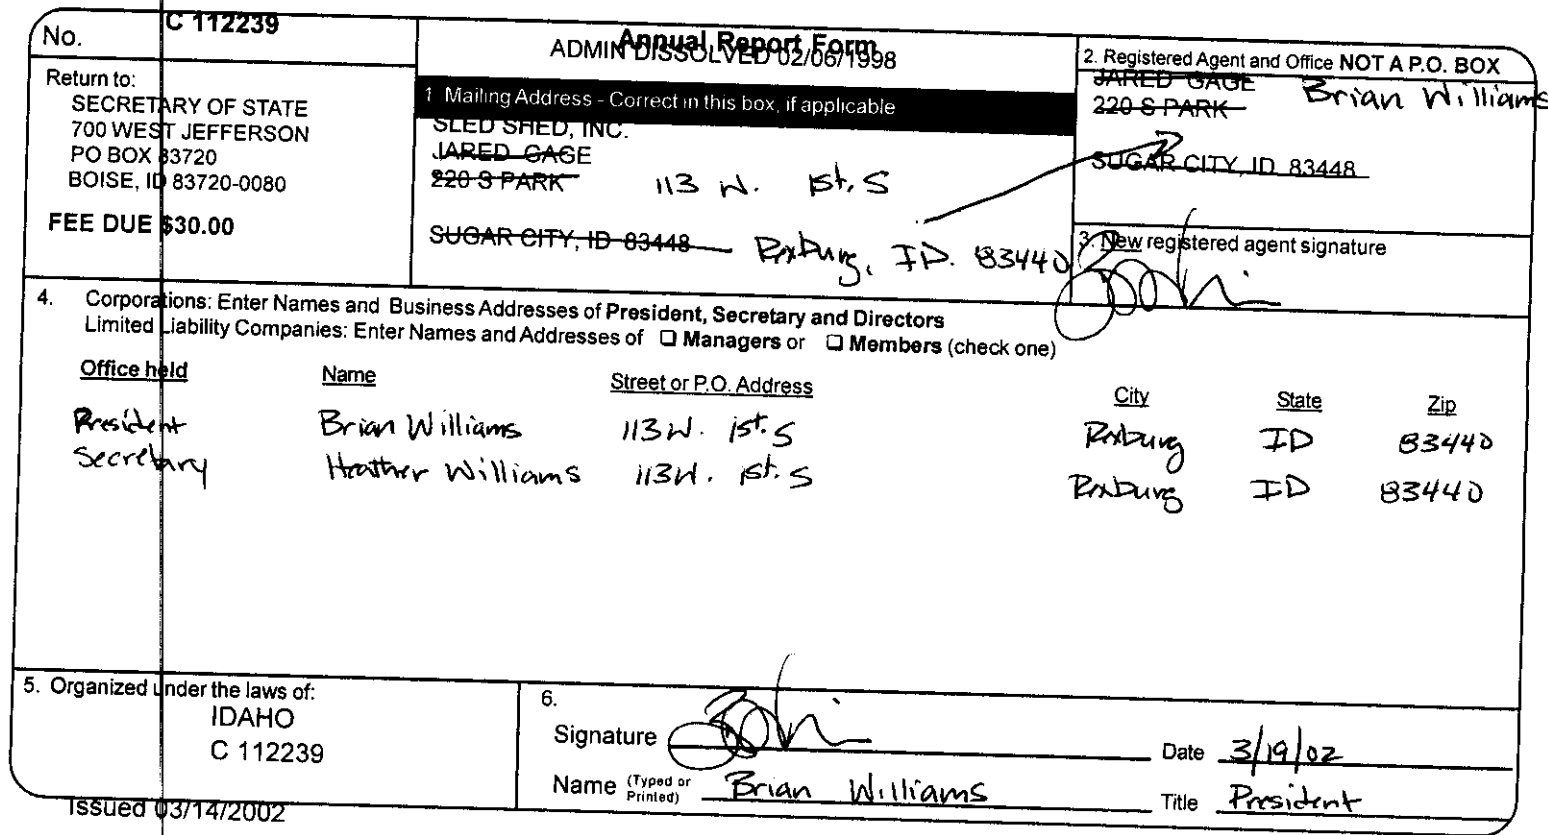 No. C 112239
Annual Report Form
ADMIN DISSOLVED 02/06/1998
Return to:
SECRETARY OF STATE
700 WEST JEFFERSON
PO BOX 83720
BOISE, ID 83720-0080
FEE DUE $30.00
1 Mailing Address - Correct in this box, if applicable
SLED SHED, INC.
JARED GAGE
220 S PARK 113 W. 1st. S
SUGAR CITY, ID 83448 Rexburg, ID. 83440
2. Registered Agent and Office NOT A P.O. BOX
JARED GAGE Brian Williams
220 S PARK
SUGAR CITY, ID 83448
3. New registered agent signature
4. Corporations: Enter Names and Business Addresses of President, Secretary and Directors
Limited Liability Companies: Enter Names and Addresses of ❑ Managers or ❑ Members (check one)
Office held Name Street or P.O. Address City State Zip
President Brian Williams 113 W. 1st. S Rexburg ID 83440
Secretary Heather Williams 113 W. 1st. S Rexburg ID 83440
5. Organized under the laws of:
IDAHO
C 112239
6.
Signature Date 3/19/02
Name (Typed or Printed) Brian Williams Title President
Issued 03/14/2002